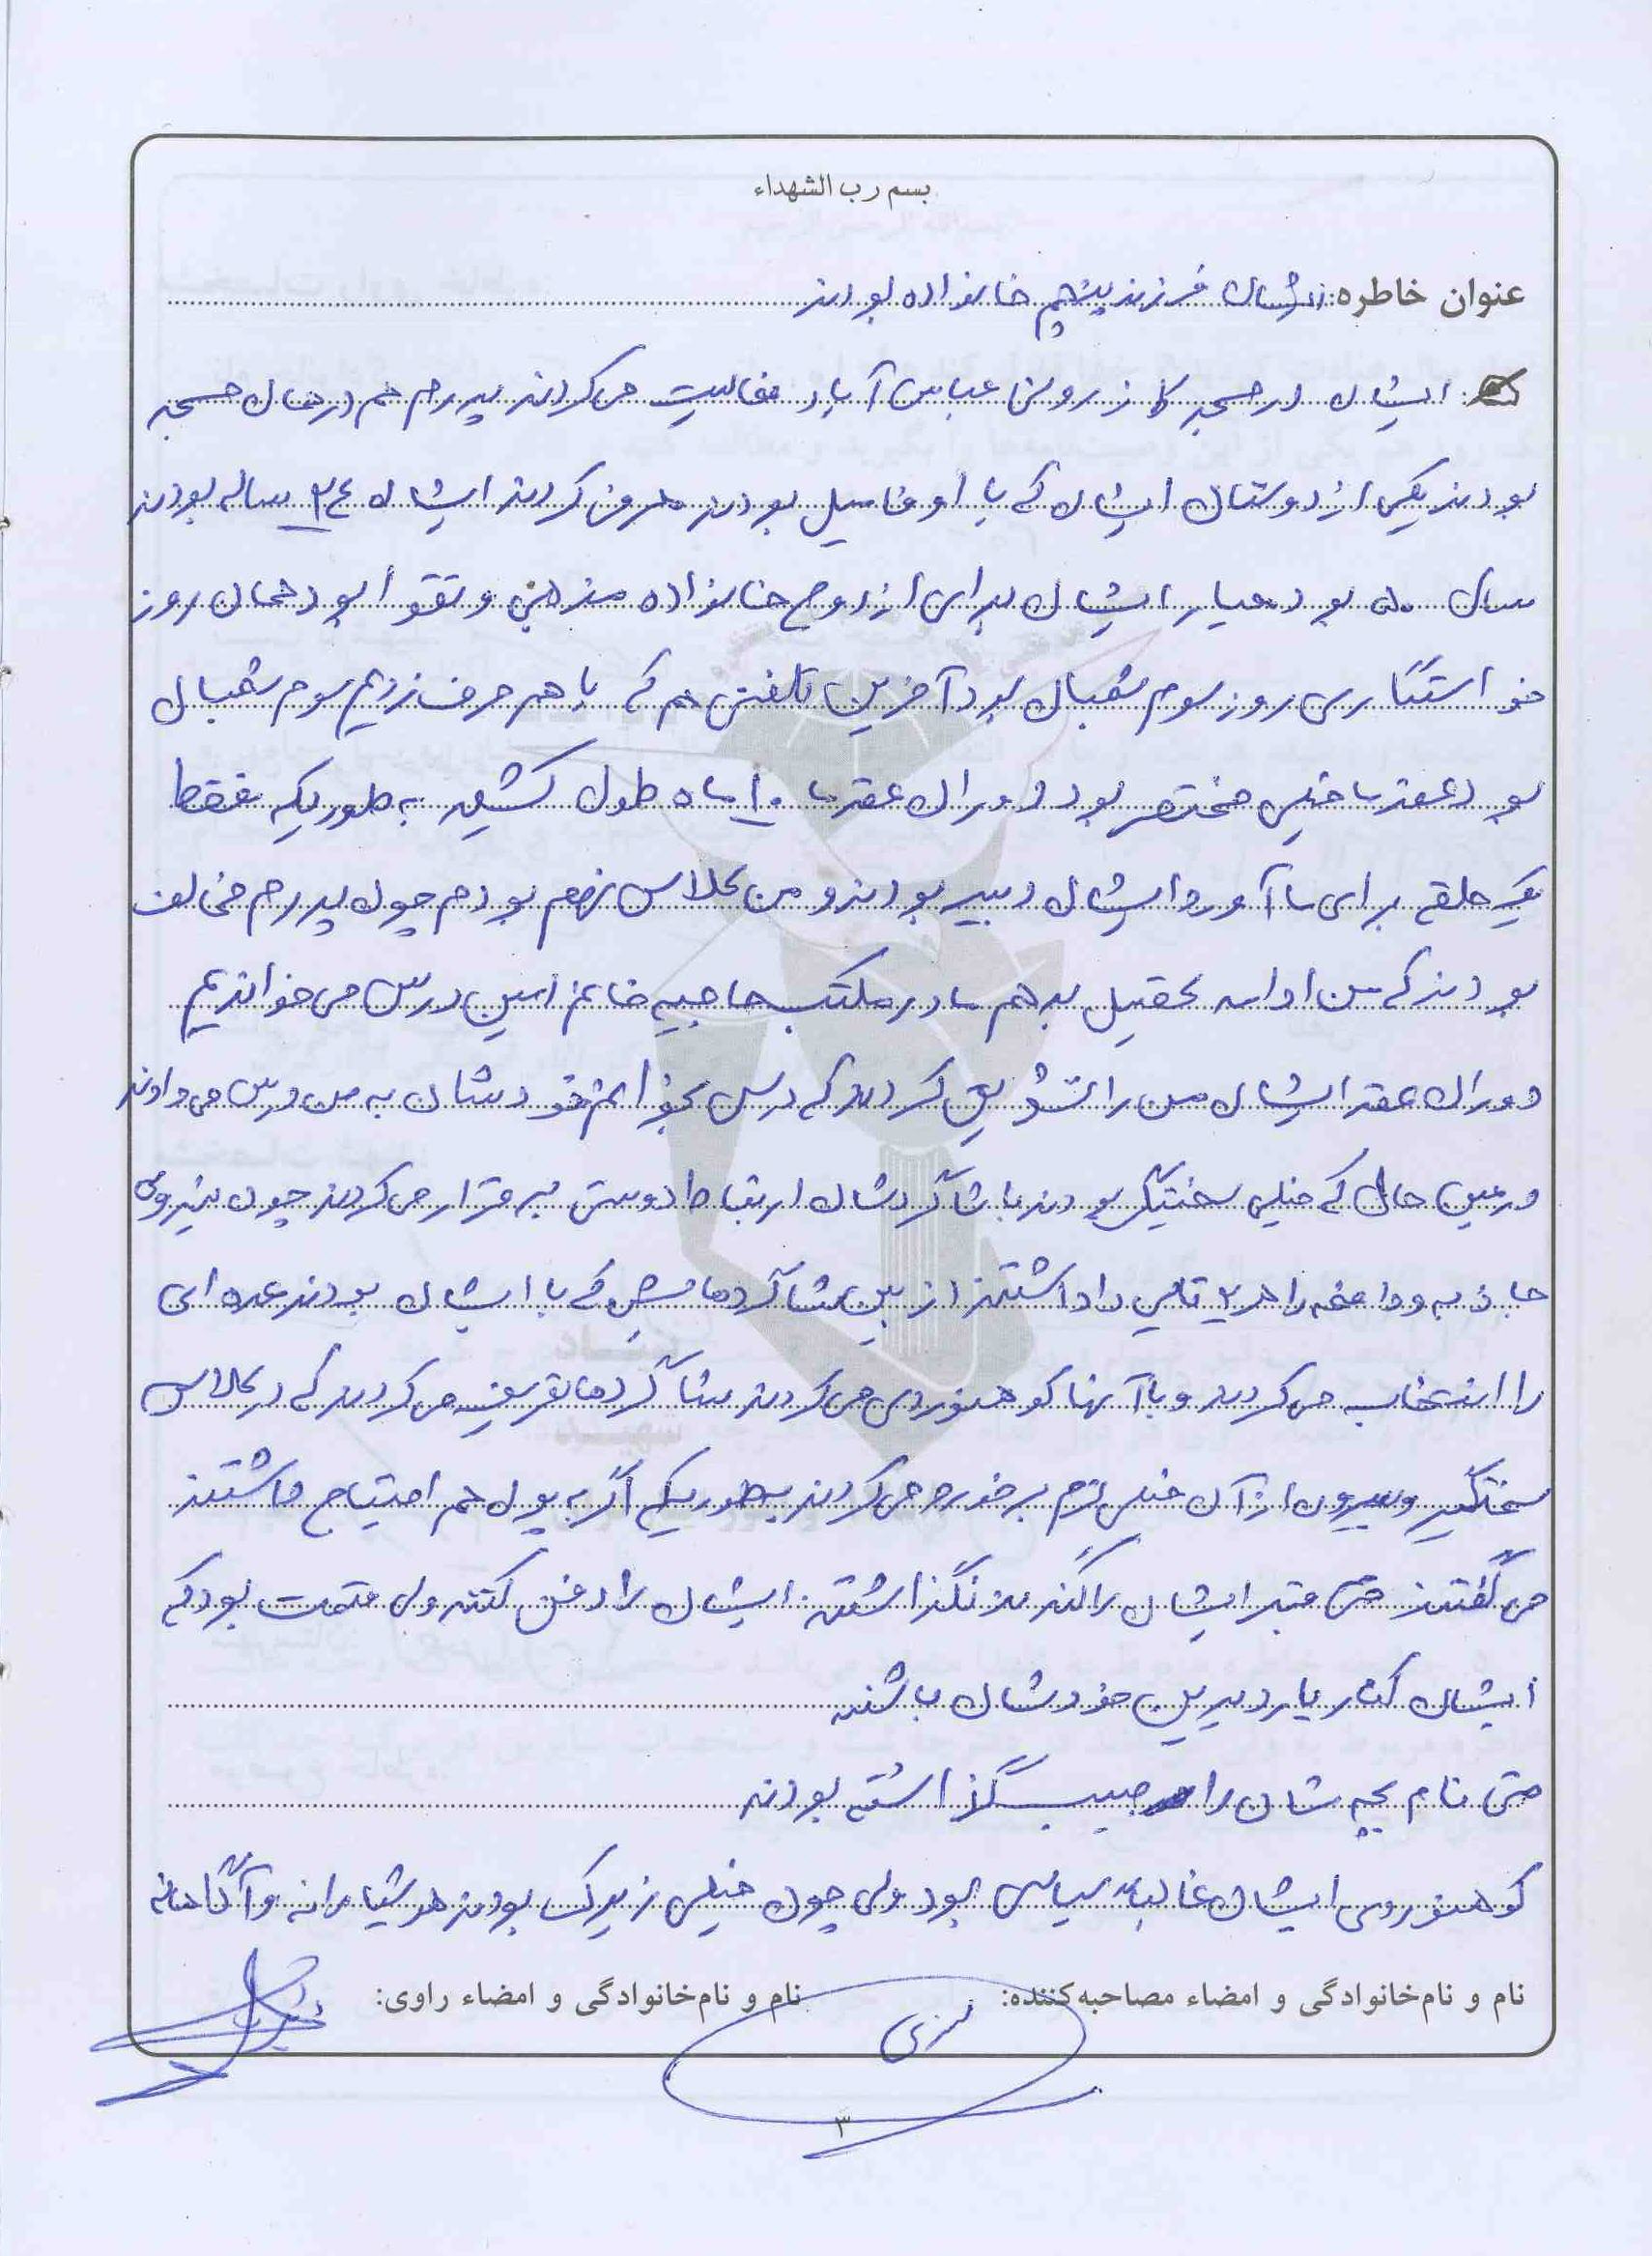 بسم رب الشهداء
عنوان خاطره: ایشان فرزند پنجم خانواده بودند
ایشان در مسجد کازرونی عباس آباد فعالیت می کردند پدرم هم در همان مسجد
بودند یکی از دوستان ایشان که با او فامیل بودند معرفی کردند ایشان ۲۴ ساله بودند
سال ۵۰ بود معیار ایشان برای ازدواج خانواده مذهبی و تقوا بود همان روز
خواستگاری روز سوم شعبان بود آخرین تلفنی هم که با هم حرف زدیم سوم شعبان
بود عقد ما خیلی مختصر بود دوران عقد ما ۱۰ ماه طول کشید به طوریکه فقط
یک حلقه برای ما آورد ایشان دبیر بودند و من کلاس نهم بودم چون پدرم مخالف
بودند که من ادامه تحصیل بدهم ما در مکتب حاجیه خانم امین درس می خواندیم
دوران عقد ایشان من را تشویق کردند که درس بخوانم خودشان به من درس می دادند
در عین حال که خیلی سختگیر بودند با شاگردشان ارتباط دوستی برقرار می کردند چون نیروی
جاذبه و دافعه را هر ۲ تایی را داشتند از بین شاگردهایش که با ایشان بودند عده ای
را انتخاب می کردند و با آنها کوهنوردی می کردند شاگردها تعریف می کردند که در کلاس
سختگیر و بیرون از آن خیلی نرم برخورد می کردند بطوریکه اگر به پول هم احتیاج داشتند
می گفتند حتی قبر ایشان را کندند نگذاشتند ایشان را دفن کنند ولی قسمت بود که
ایشان کنار یار دیرین خودشان باشند
حتی نام بچه شان را حبیب گذاشته بودند
کوهنوردی ایشان غالبا سیاسی بود ولی چون خیلی زیرک بودند هوشیارانه و آگاهانه
نام و نام‌خانوادگی و امضاء مصاحبه‌کننده: نام و نام‌خانوادگی و امضاء راوی:
۳